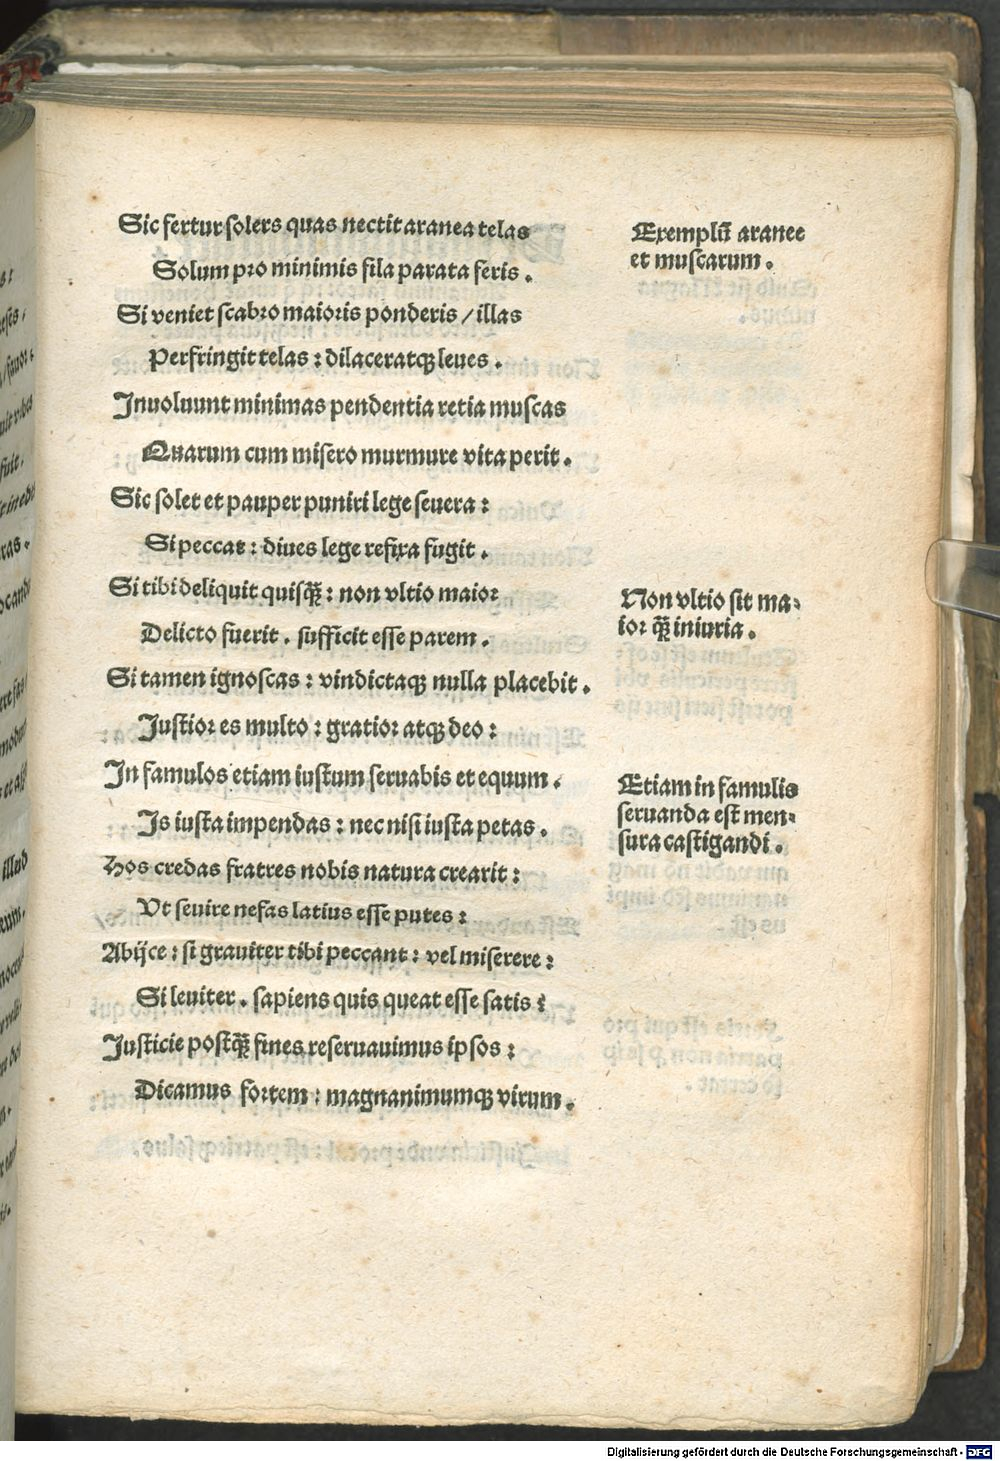 Sic fertur solers quas nectit aranea telas
Solum pro minimis fila parata feris.
Si veniet scabro maioris ponderis / illas
Perfringit telas : dilaceratqꝫ leues.
Inuoluunt minimas pendentia retia muscas
Quarum cum misero murmure vita perit.
Sic solet et pauper puniri lege seuera :
Si peccat : diues lege refixa fugit.
Si tibi deliquit quisq̃ꝫ : non vltio maior
Delicto fuerit. sufficit esse parem.
Si tamen ignoscas : vindictaqꝫ nulla placebit.
Justior es multo : gratior atqꝫ deo :
In famulos etiam iustum seruabis et equum.
Is iusta impendas : nec nisi iusta petas.
Hos credas fratres nobis natura crearit :
Vt seuire nefas latius esse putes :
Abijce : si grauiter tibi peccant : vel miserere :
Si leuiter. sapiens quis queat esse satis :
Justicie postq̃ꝫ fines reseruauimus ipsos :
Dicamus fortem : magnanimumqꝫ virum.
Exemplũ aranee
et muscarum.
Non vltio sit ma-
ior q̃ꝫ iniuria.
Etiam in famulis
seruanda est men-
sura castigandi.
Digitalisierung gefördert durch die Deutsche Forschungsgemeinschaft - DFG